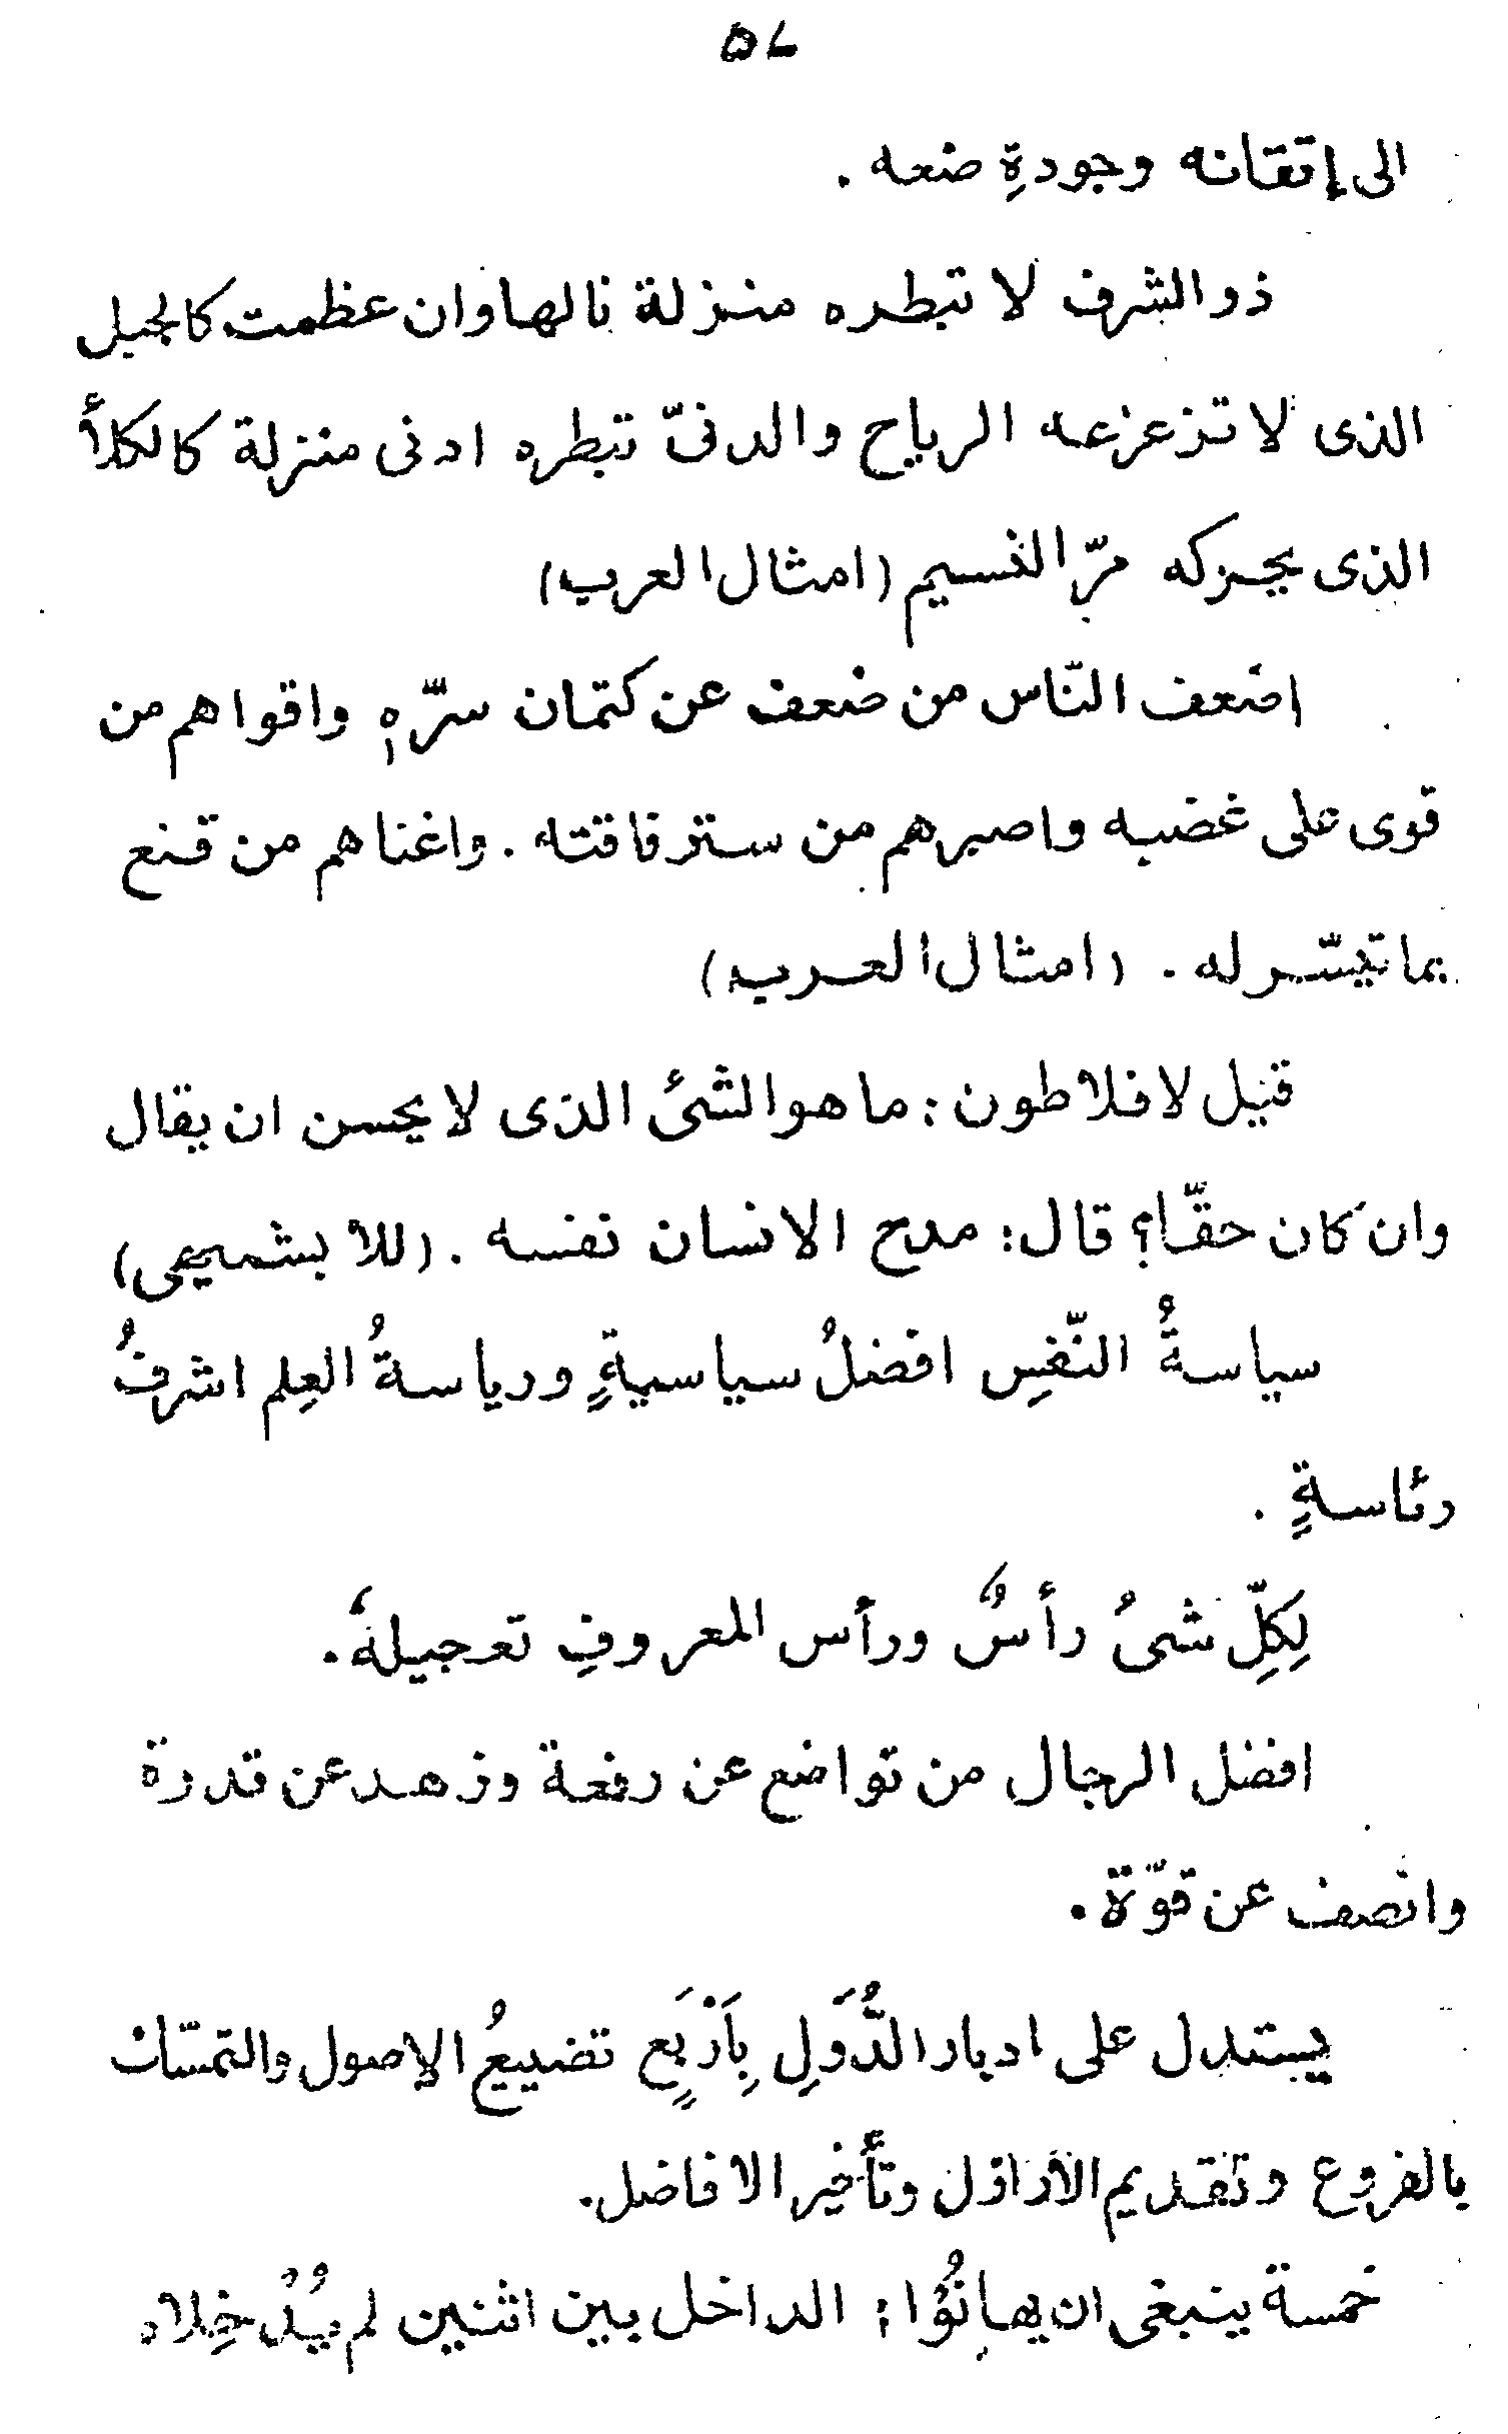 ٥٧
الى إتقانه وجودةِ صنعه .
ذو الشرف لا تبطره منزلة نالها وان عظمت كالجبل
الذى لا تزعزعه الرياح والدنىّ تبطره ادنى منزلة كالكلأ
الذى يحركه مرّ النسيم (امثال العرب)
اضعف النّاس من ضعف عن كتمان سرّهٖ واقواهم من
قوى على غضبه واصبرهم من ستر فاقته . واغناهم من قنع
بما تيسّر له . (امثال العرب)
قيل لافلاطون : ما هو الشئ الذى لا يحسن ان يقال
وان كان حقّا؟ قال: مدح الانسان نفسه . (للابشميهى)
سياسةُ النّفسِ افضلُ سياسيةٍ ورياسةُ العِلم اشرفُ
رئاسةٍ .
لِكلِّ شىُ رأسٌ ورأس المعروفِ تعجيلهُ .
افضل الرجال من تواضع عن رفعة وزهد عن قدرة
وانصف عن قوّة .
يستدل على ادبار الدُّوَلِ بِاَرْبَعٍ تضييعُ الاصول والتمسّك
بالفروع وتقديم الأراذل وتأخير الافاضل .
خمسة ينبغى ان يهانُوُا : الداخل بين اثنين لم يُدْخِلاه